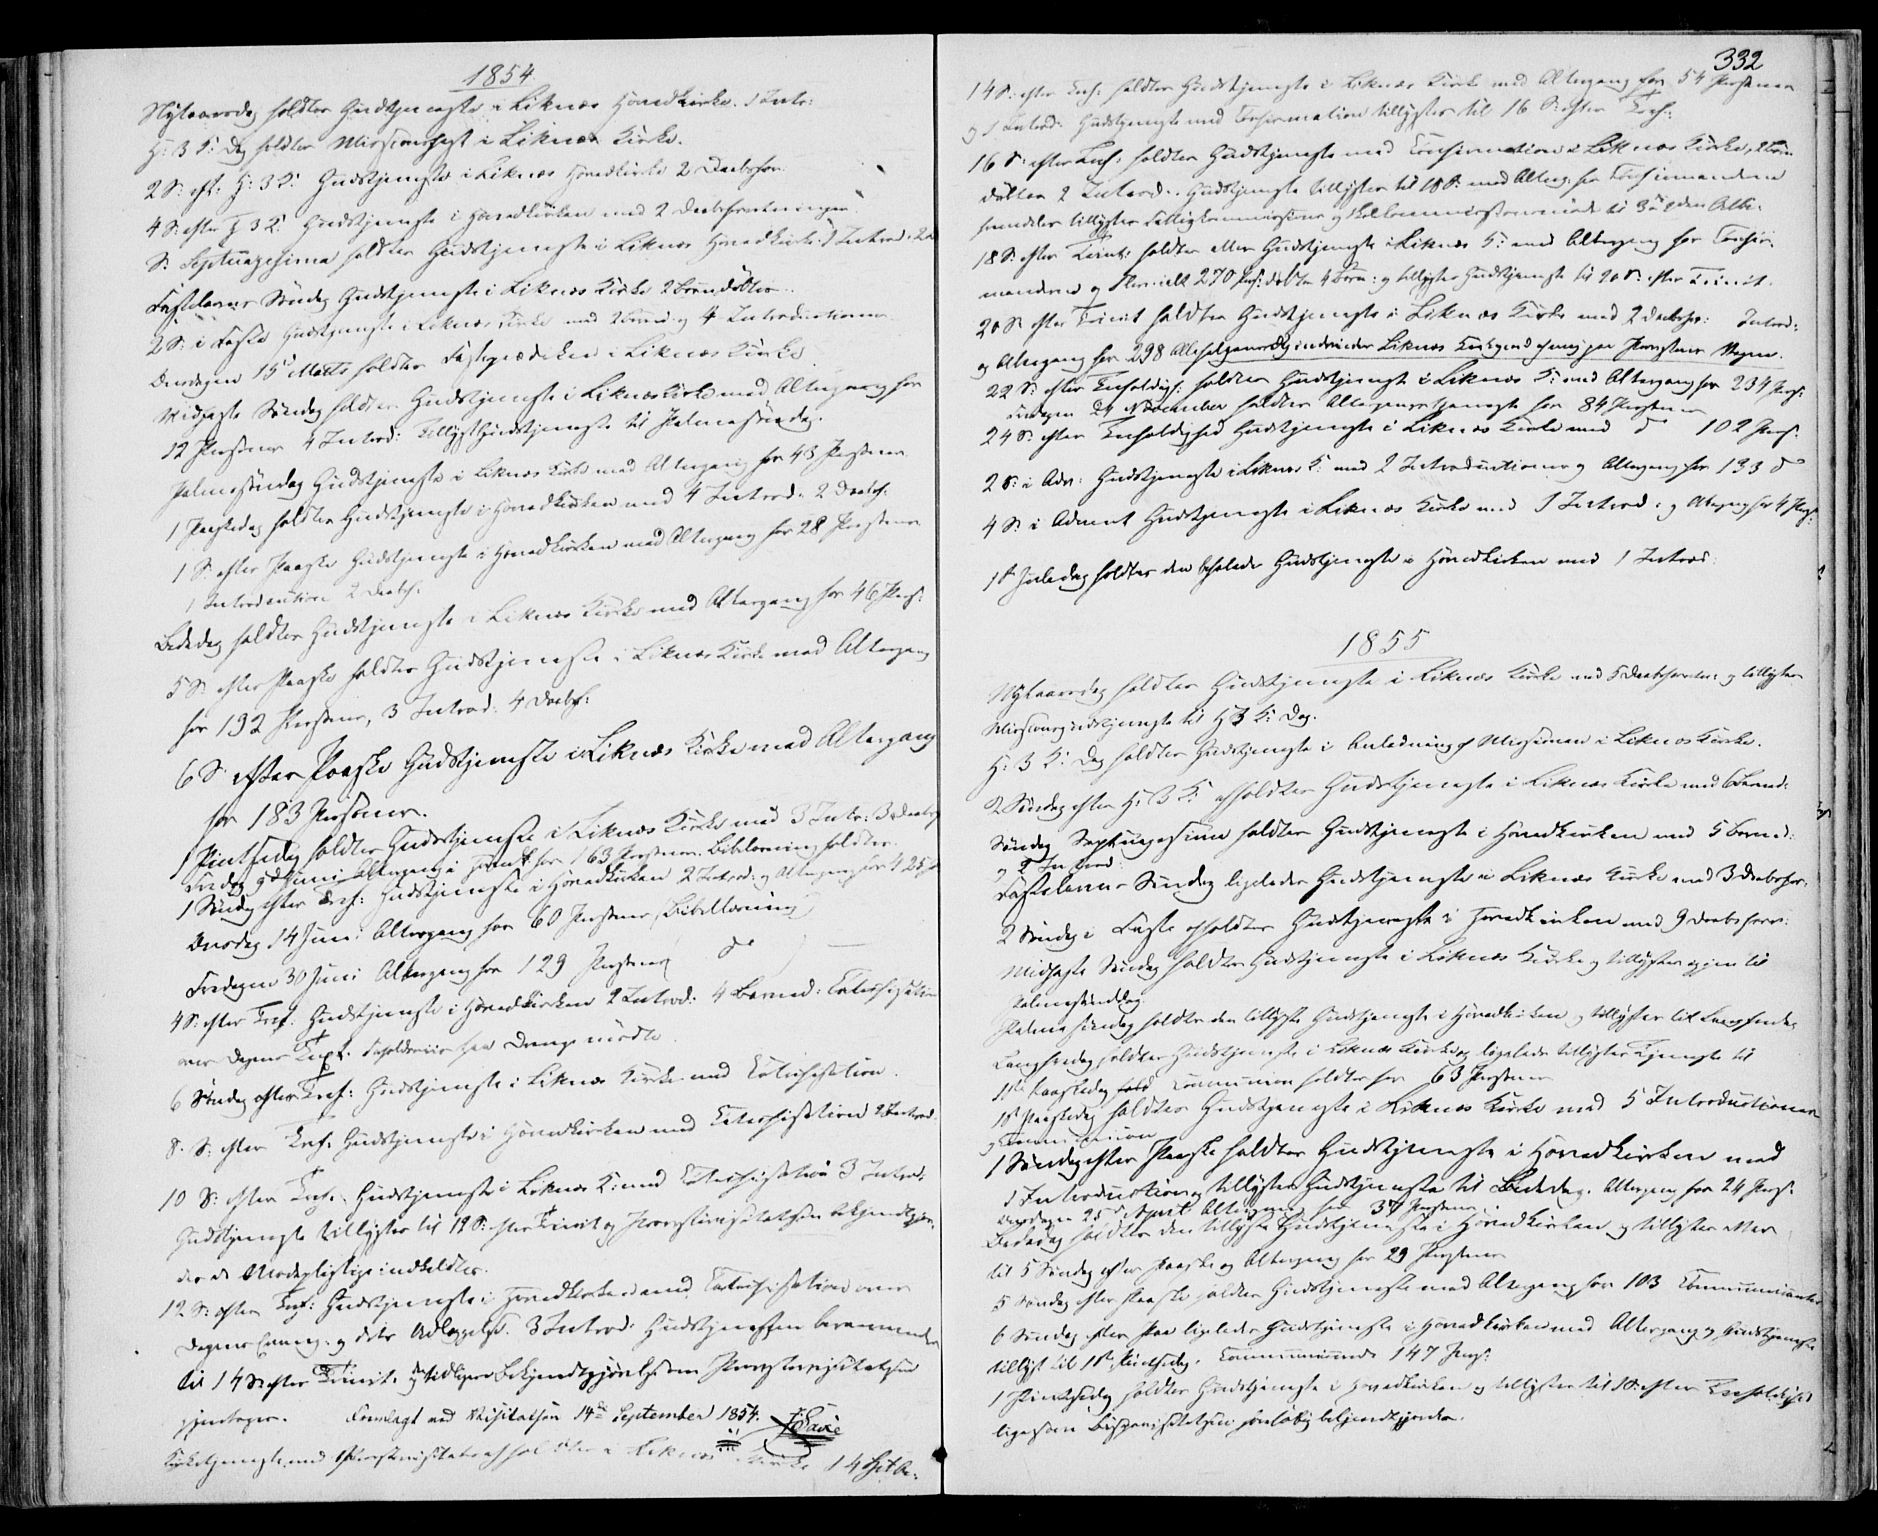 1854
Nytaarsdag holdtes Gudstjeneste i Liknæs Hovedkirke. 1 Intr:
H: 3 K: Dag holdtes Missionsfest i Liknæs Kirke.
2 S: eft: H: 3 K: Gudstjeneste i Liknæs Hovedkirke 2 Daabsfor.
4 S: efter H 3 K: Gudstjeneste i Hovedkirken med 2 Daabsforretninger.
S: Septuagesima holdtes Gudstjeneste i Liknæs Hovedkirke: 1 Introd:
Fastelavns Søndag Gudstjeneste i Liknæs Kirke 2 Børn døbtes.
2 S: i Faste Gudstjeneste i Liknæs Kirke med 2 og 4 Introductioner.
Onsdagen 15 Marts holdtes Fasteprædiken i Liknæs Kirke
Midfaste Søndag holdtes Gudstjeneste i Liknæs Kirke med Altergang for
12 Personer 4 Introd: Tillyst Gudstjeneste til Palmesøndag.
Palmesøndag Gudstjeneste i Liknæs Kirke med Altergang for 43 Personer
1 Paaskedag holdtes Gudstjeneste i Hovedkirken med 4 Introd. 2 Daabsf.
1 S: efter Paaske Gudstjeneste i Hovedkirken med Altergang for 28 Personer
1 Introduction 2 Daabsf.
Bededag holdtes Gudstjeneste i Liknæs Kirke med Altergang for 46 Pers:
5 S: efter Paaske holdtes Gudstjeneste i Liknæs Kirke med Altergang
for 192 Personer, 3 Introd: 4 Daabsf:
6 S: efter Paaske Gudstjeneste i Liknæs Kirke med Altergang
for 183 Personer.
1 Pintsedag holdtes Gudstjeneste i Liknæs Kirke med 3 Intr: 3 Daabsf
Fredag 9de Juni Altergang i for 163 Personer. Bibellæsning holdtes.
1 Søndag efter Tref: Gudstjeneste i Hovedkirken 2 Introd: og Altergang for 425
Onsdag 14 Juni Altergang for 60 Personer (Bibellæsning)
Fredagen 30 Juni Altergang for 129 Personer do
4 S: efter Tref: Gudstjeneste i Hovedkirken 2 Introd: 4 Barned: Catechisation
over Dagens Text. Drenge mødte.
6 Søndag efter Tref: Gudstjeneste i Liknæs Kirke med Catechisation.
8. S: efter Tref. Gudstjeneste i Hovedkirken med Catechisation 2 Introd.
10 S: efter Tref. Gudstjeneste i Liknæs K: med Catechisation 3 Introd.
Gudstjeneste tillystes til 12 S: efter Trinit og Provstevisitatsen bekjendtgjør,
der de Mødepligtige indkaldtes.
12 S: efter Tref: Gudstjeneste i Hovedkirken med Catechisation over
Dagens Evang. og dets Udlæggelse. 3 Introd: Gudstjenesten berammedes
til 14 S: efter Trinit. og tidligere Bekjendtgjørelse om Provstevisitatsen
gjentages. Fremlagt ved Visitatsen 14de September 1854.
Kirketjeneste med Provstevisitats afholdtes i Liknæs Kirke 14 Septbr.
332
14 S: efter Tref: holdtes Gudstjeneste i Liknæs Kirke med Altergang for 54 Personer
og 1 Introd: Gudstjeneste med Confirmation tillystes til 16 S: efter Tref:
16 S: efter Tref. holdtes Gudstjeneste med Confirmation i Liknæs Kirke, 2 Børn
døbtes 2 Introd. Gudstjeneste tillystes til 18 S: med Alterg: for Confirmanderne
fremdeles tillystes Fattigkommissions og Skolkommissionsmøde til den Octbr.
18 S: efter Trinit: holdtes atter Gudstjeneste i Liknæs K: med Altergang for Confir:
manderne og Flere i alt 270 Pers: døbte 4 Børn: og tillystes Gudstjeneste til 20 S: efter Trinit.
20 S: efter Trinit holdtes Gudstjeneste i Liknæs Kirke med 2 Daabsfor: Introd:
og Altergang for 298 Allehelgensdag Liknæs Personer
22 S: efter Trefoldigh: holdtes Gudstjeneste i Liknæs K: med Altergang for 234 Pers:
Fredagen 24 November holdtes Altergangstjeneste for 84 Personer
24 S: efter Trefoldighed Gudstjeneste i Liknæs Kirke med do 102 Pers:
2 S: i Adv: Gudstjeneste i Liknæs K: med 2 Introductioner og Altergang for 133 do
4 S: i Advent Gudstjeneste i Liknæs Kirke med 1 Introd: og Altergang for 4 Pers:
1ste Juledag holdtes den befalede Gudstjeneste i Hovedkirken med 1 Introd:
1855
Nytaarsdag holdtes Gudstjeneste i Liknæs Kirke med 5 Daabsforretn: og tillystes
Missionsgudstjeneste til H 3 K: Dag.
H: 3 K: Dag holdtes Gudstjeneste i Anledning af Missionen i Liknæs Kirke.
2 Søndag efter H: 3 K: afholdtes Gudstjeneste i Liknæs Kirke med 6 Barned:
Søndag Septuagesima holdtes Gudstjeneste i Hovedkirken med 5 Barned:
og 2 Introd:
Fastelavns Søndag ligeledes Gudstjeneste i Liknæs Kirke med 3 Daabsfor:
2 Søndag i Faste afholdtes Gudstjeneste i Hovedkirken med 9 Daabsforr:
Midfaste Søndag holdtes Gudstjeneste i Liknæs Kirke og tillystes igjen til
Palmesøndag.
Palmesøndag holdtes den tillyste Gudstjeneste i Hovedkirken og tillystes til Langfredag
Langfredag holdtes Gudstjeneste i Liknæs Kirke og ligeledes tillystes Tjeneste til
1ste Paaskedag Communion holdtes for 63 Personer
1ste Paaskedag holdtes Gudstjeneste i Liknæs Kirke med 5 Introductioner
og Communion
1 Søndag efter Paaske holdtes Gudstjeneste i Hovedkirken med
1 Introduction og tillystes Gudstjeneste til Bededag. Altergang for 24 Pers:
Onsdagen 25de April Altergang for 37 Personer.
Bededag holdtes den tillyste Gudstjeneste i Hovedkirken og tillystes atter
til 5 Søndag efter Paaske og Altergang for 29 Personer
5 Søndag efter Paaske holdtes Gudstjeneste med Altergang for 103 Communicanter
6 Søndag efter Paa ligeledes Gudstjeneste i Hovedkirken med Altergang og Gudstjeneste
tillyst til 1ste Pintsedag. Communicerende 147 Pers:
1 Pintsedag holdtes Gudstjeneste i Hovedkirken og tillystes til 1 S: efter Trefoldighed
ligesom Bispevisitatsen foreløbig bekjendtgjordes.